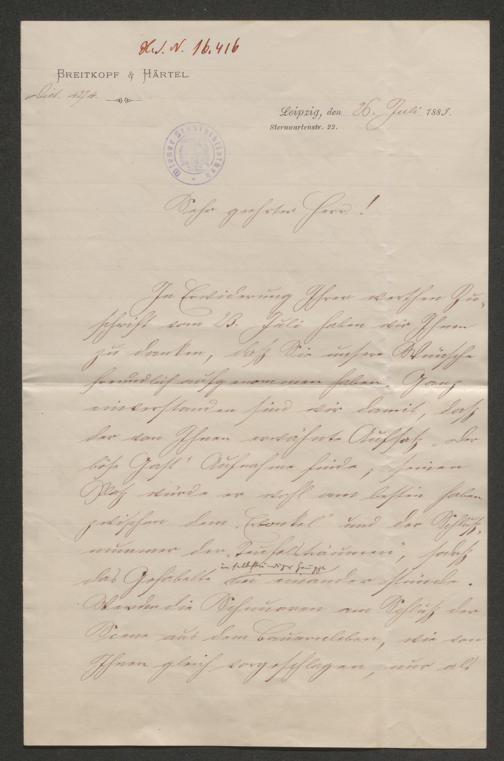 H. I. N. 16.416
BREITKOPF & HÄRTEL
Leipzig, den 26. Juli 1883.
Sternwartenstr. 22.
Sehr geehrter Herr!
In Erwiderung Ihrer werthen Zu-
schrift vom 23. Juli haben wir Ihnen
zu danken, daß Sie unsere Wünsche
freundlich aufgenommen haben. Ganz
einverstanden sind wir damit, daß
der von Ihnen erwähnte Aufsatz „der
böse Gast“ Aufnahme finde; seinen
Platz würde er wohl am besten haben
zwischen dem und der Schluß-
nummer der
das
die am Schluß der
Scene aus dem Bauernleben, wie von
Ihnen gleich vorgeschlagen, nur als